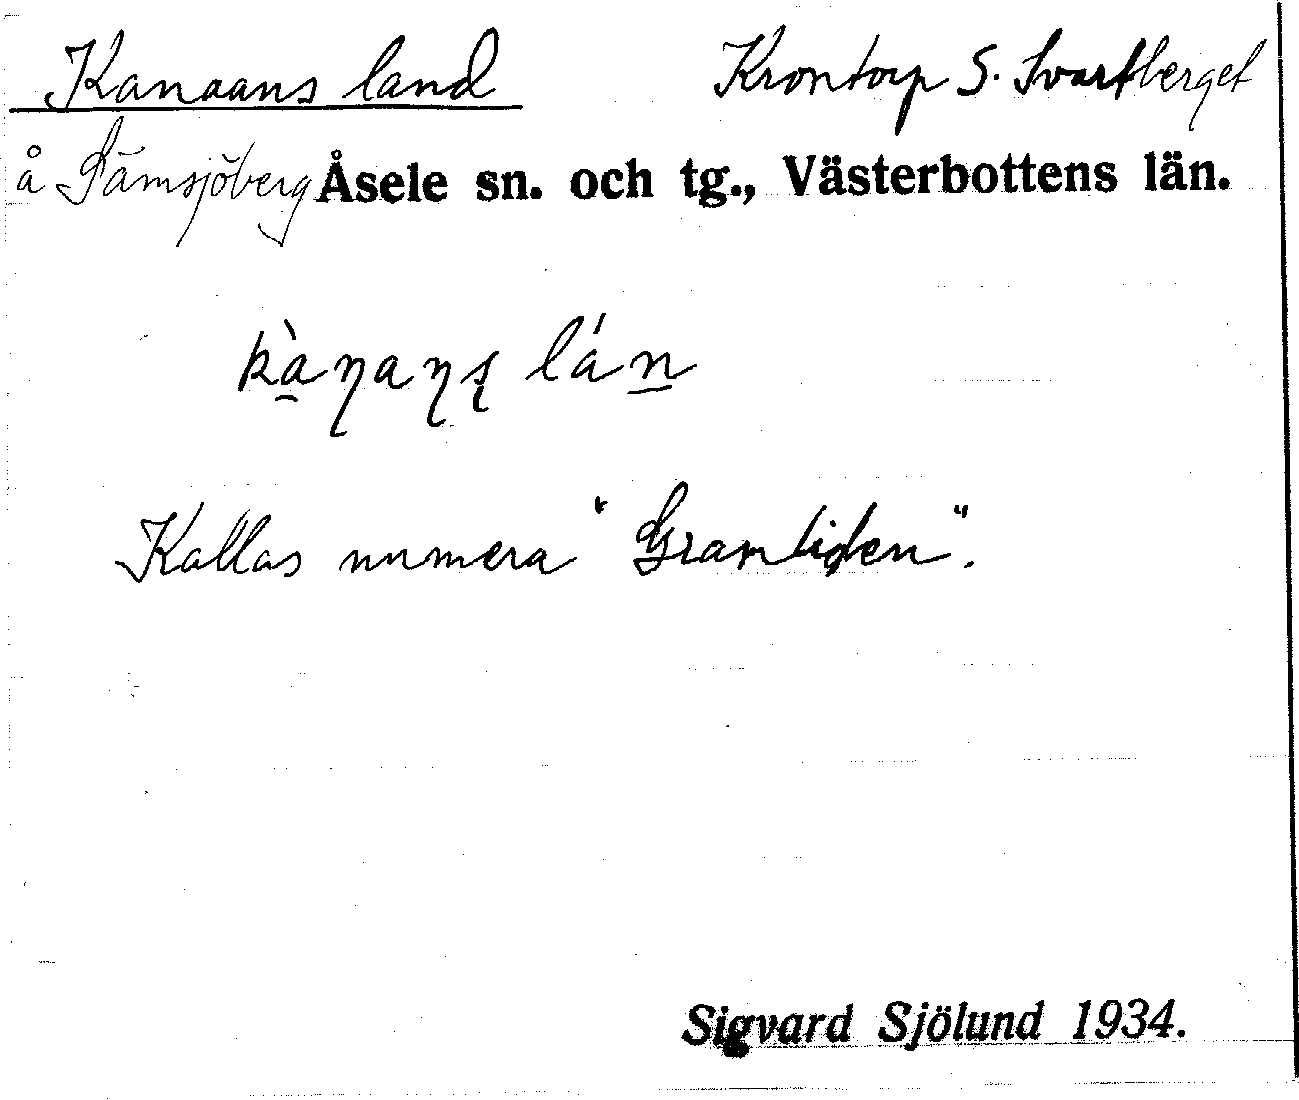 Kanaans land Krontorp S. Svartberget
å Sämsjöberg Åsele sn. och tg., Västerbottens län.
kànans lán
Kallas numera "Granliden".
Sigvard Sjölund 1934.